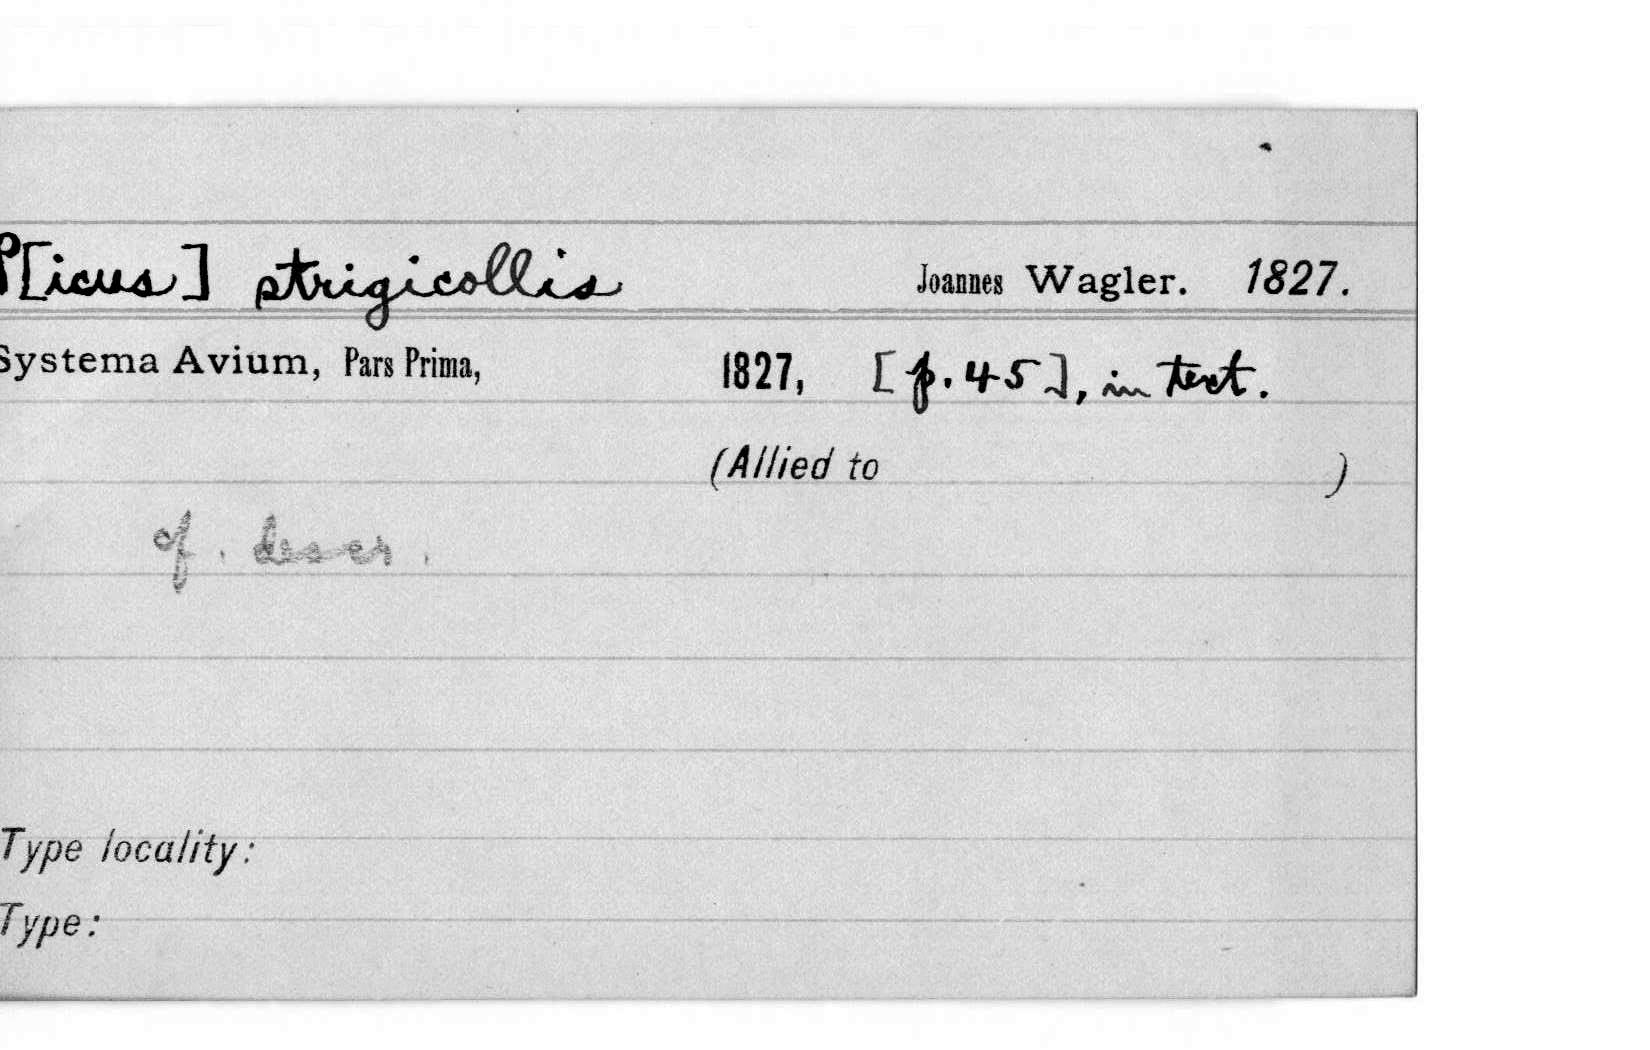 P[icus] strigicollis Joannes Wagler. 1827.
Systema Avium, Pars Prima, 1827, [p.45], in text.
(Allied to )
cf. descr.
Type locality:
Type: